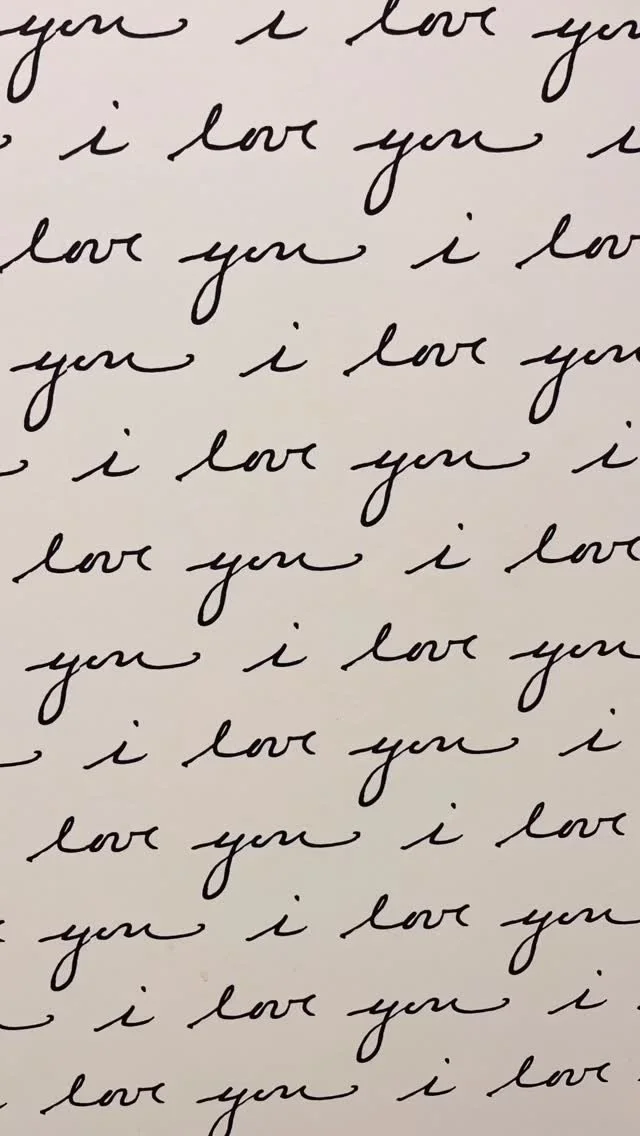 you i love you
i love you i
love you i love
you i love you
i love you i
love you i love
you i love you
i love you i
love you i love
you i love you
i love you i
love you i love